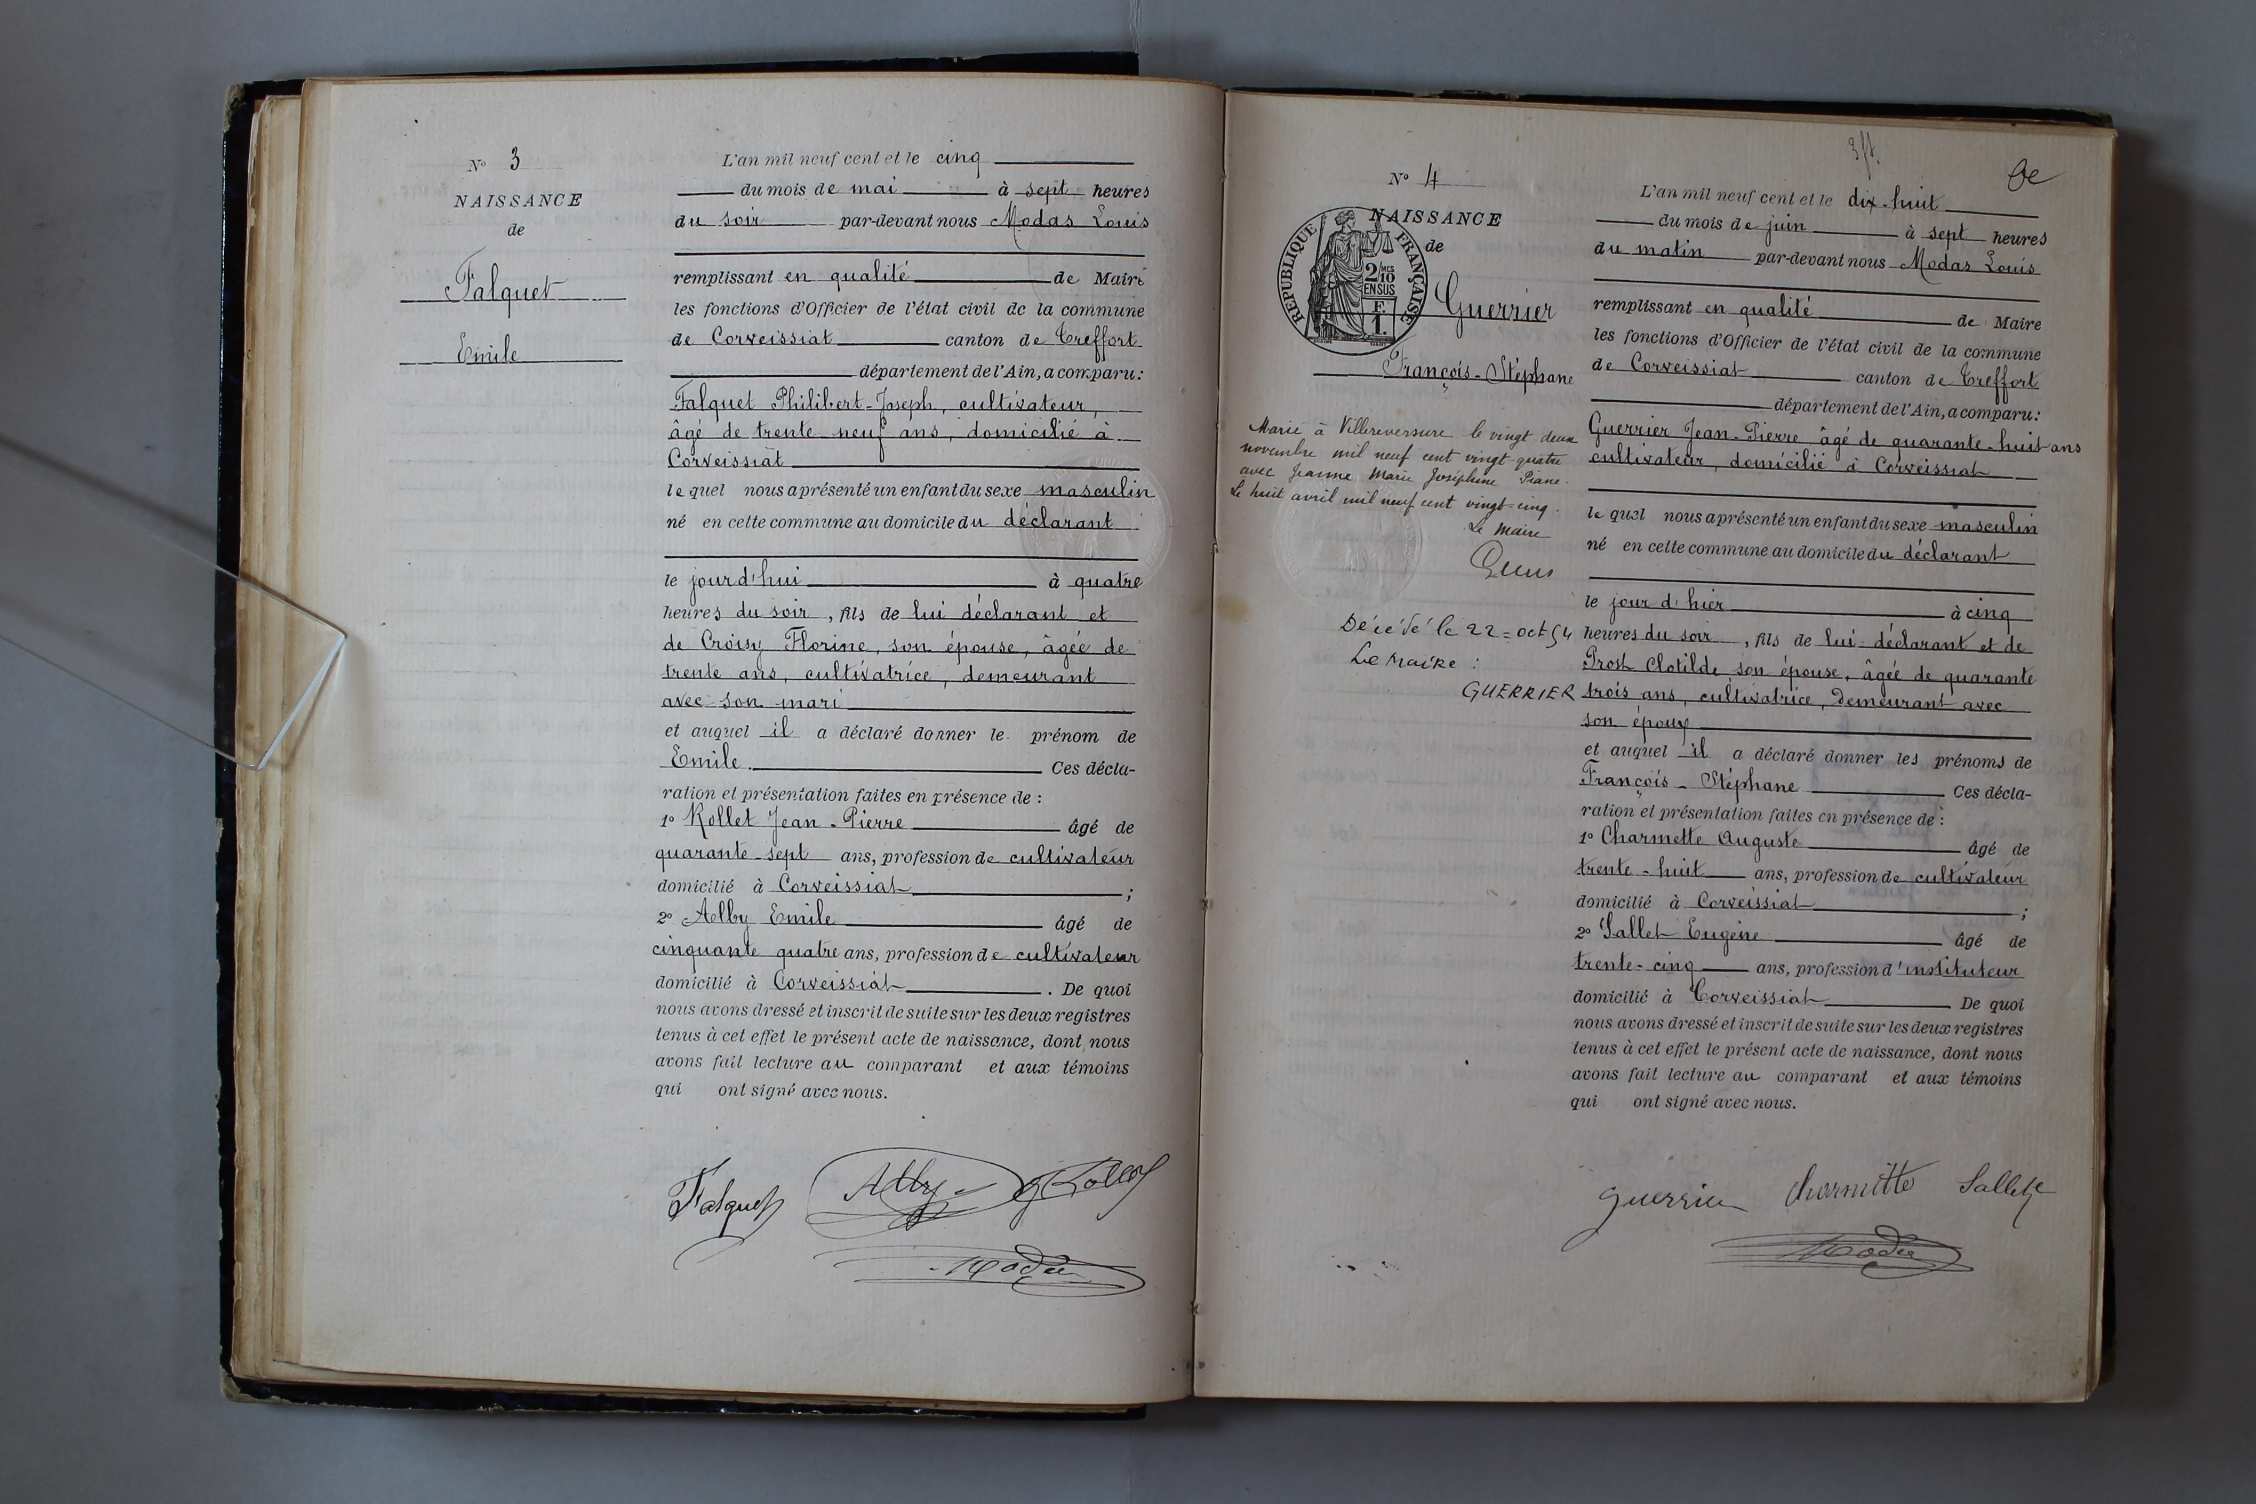 N° 3
NAISSANCE
de
Falquet
Emile
L'an mil neuf cent et le cinq
du mois de mai à sept heures
du soir par-devant nous Modas Louis
remplissant en qualité de Maire
les fonctions d'Officier de l'état civil de la commune
de Corveissiat canton de Treffort
département de l'Ain, a comparu:
Falquet Philibert-Joseph, cultivateur,
âgé de trente neuf ans, domicilié à
Corveissiat
lequel nous a présenté un enfant du sexe masculin
né en cette commune au domicile du déclarant
le jour d'hui à quatre
heures du soir, fils de lui déclarant et
de Croisy Florine, son épouse, âgée de
trente ans, cultivatrice, demeurant
avec son mari
et auquel il a déclaré donner le prénom de
Emile. Ces décla-
ration et présentation faites en présence de :
1° Rollet Jean-Pierre âgé de
quarante-sept ans, profession de cultivateur
domicilié à Corveissiat ;
2° Aelby Emile âgé de
cinquante quatre ans, profession de cultivateur
domicilié à Corveissiat . De quoi
nous avons dressé et inscrit de suite sur les deux registres
tenus à cet effet le présent acte de naissance, dont nous
avons fait lecture au comparant et aux témoins
qui ont signé avec nous.
Falquet
N° 4
NAISSANCE
de
RÉPUBLIQUE FRANÇAISE
2/10 MES
EN SUS
F.
1.
Guerrier
François-Stéphane
Marié à Villereversure le vingt deux
novembre mil neuf cent vingt-quatre
avec Jeanne Marie Joséphine Piane.
Le huit avril mil neuf cent vingt-cinq.
Le Maire
Décédé le 22=oct 54
Le Maire :
GUERRIER
L'an mil neuf cent et le dix-huit
du mois de juin à sept heures
du matin par-devant nous Modas Louis
remplissant en qualité de Maire
les fonctions d'Officier de l'état civil de la commune
de Corveissiat canton de Treffort
département de l'Ain, a comparu:
Guerrier Jean-Pierre âgé de quarante-huit ans
cultivateur, domicilié à Corveissiat
lequel nous a présenté un enfant du sexe masculin
né en cette commune au domicile du déclarant
le jour d'hier à cinq
heures du soir, fils de lui déclarant et de
Prost Clotilde, son épouse, âgée de quarante
trois ans, cultivatrice, demeurant avec
son époux
et auquel il a déclaré donner les prénoms de
François-Stéphane Ces décla-
ration et présentation faites en présence de :
1° Charmette Auguste âgé de
trente-huit ans, profession de cultivateur
domicilié à Corveissiat ;
2° Sallet Eugène âgé de
trente-cinq ans, profession d'instituteur
domicilié à Corveissiat De quoi
nous avons dressé et inscrit de suite sur les deux registres
tenus à cet effet le présent acte de naissance, dont nous
avons fait lecture au comparant et aux témoins
qui ont signé avec nous.
Guerrier Charmette Sallet